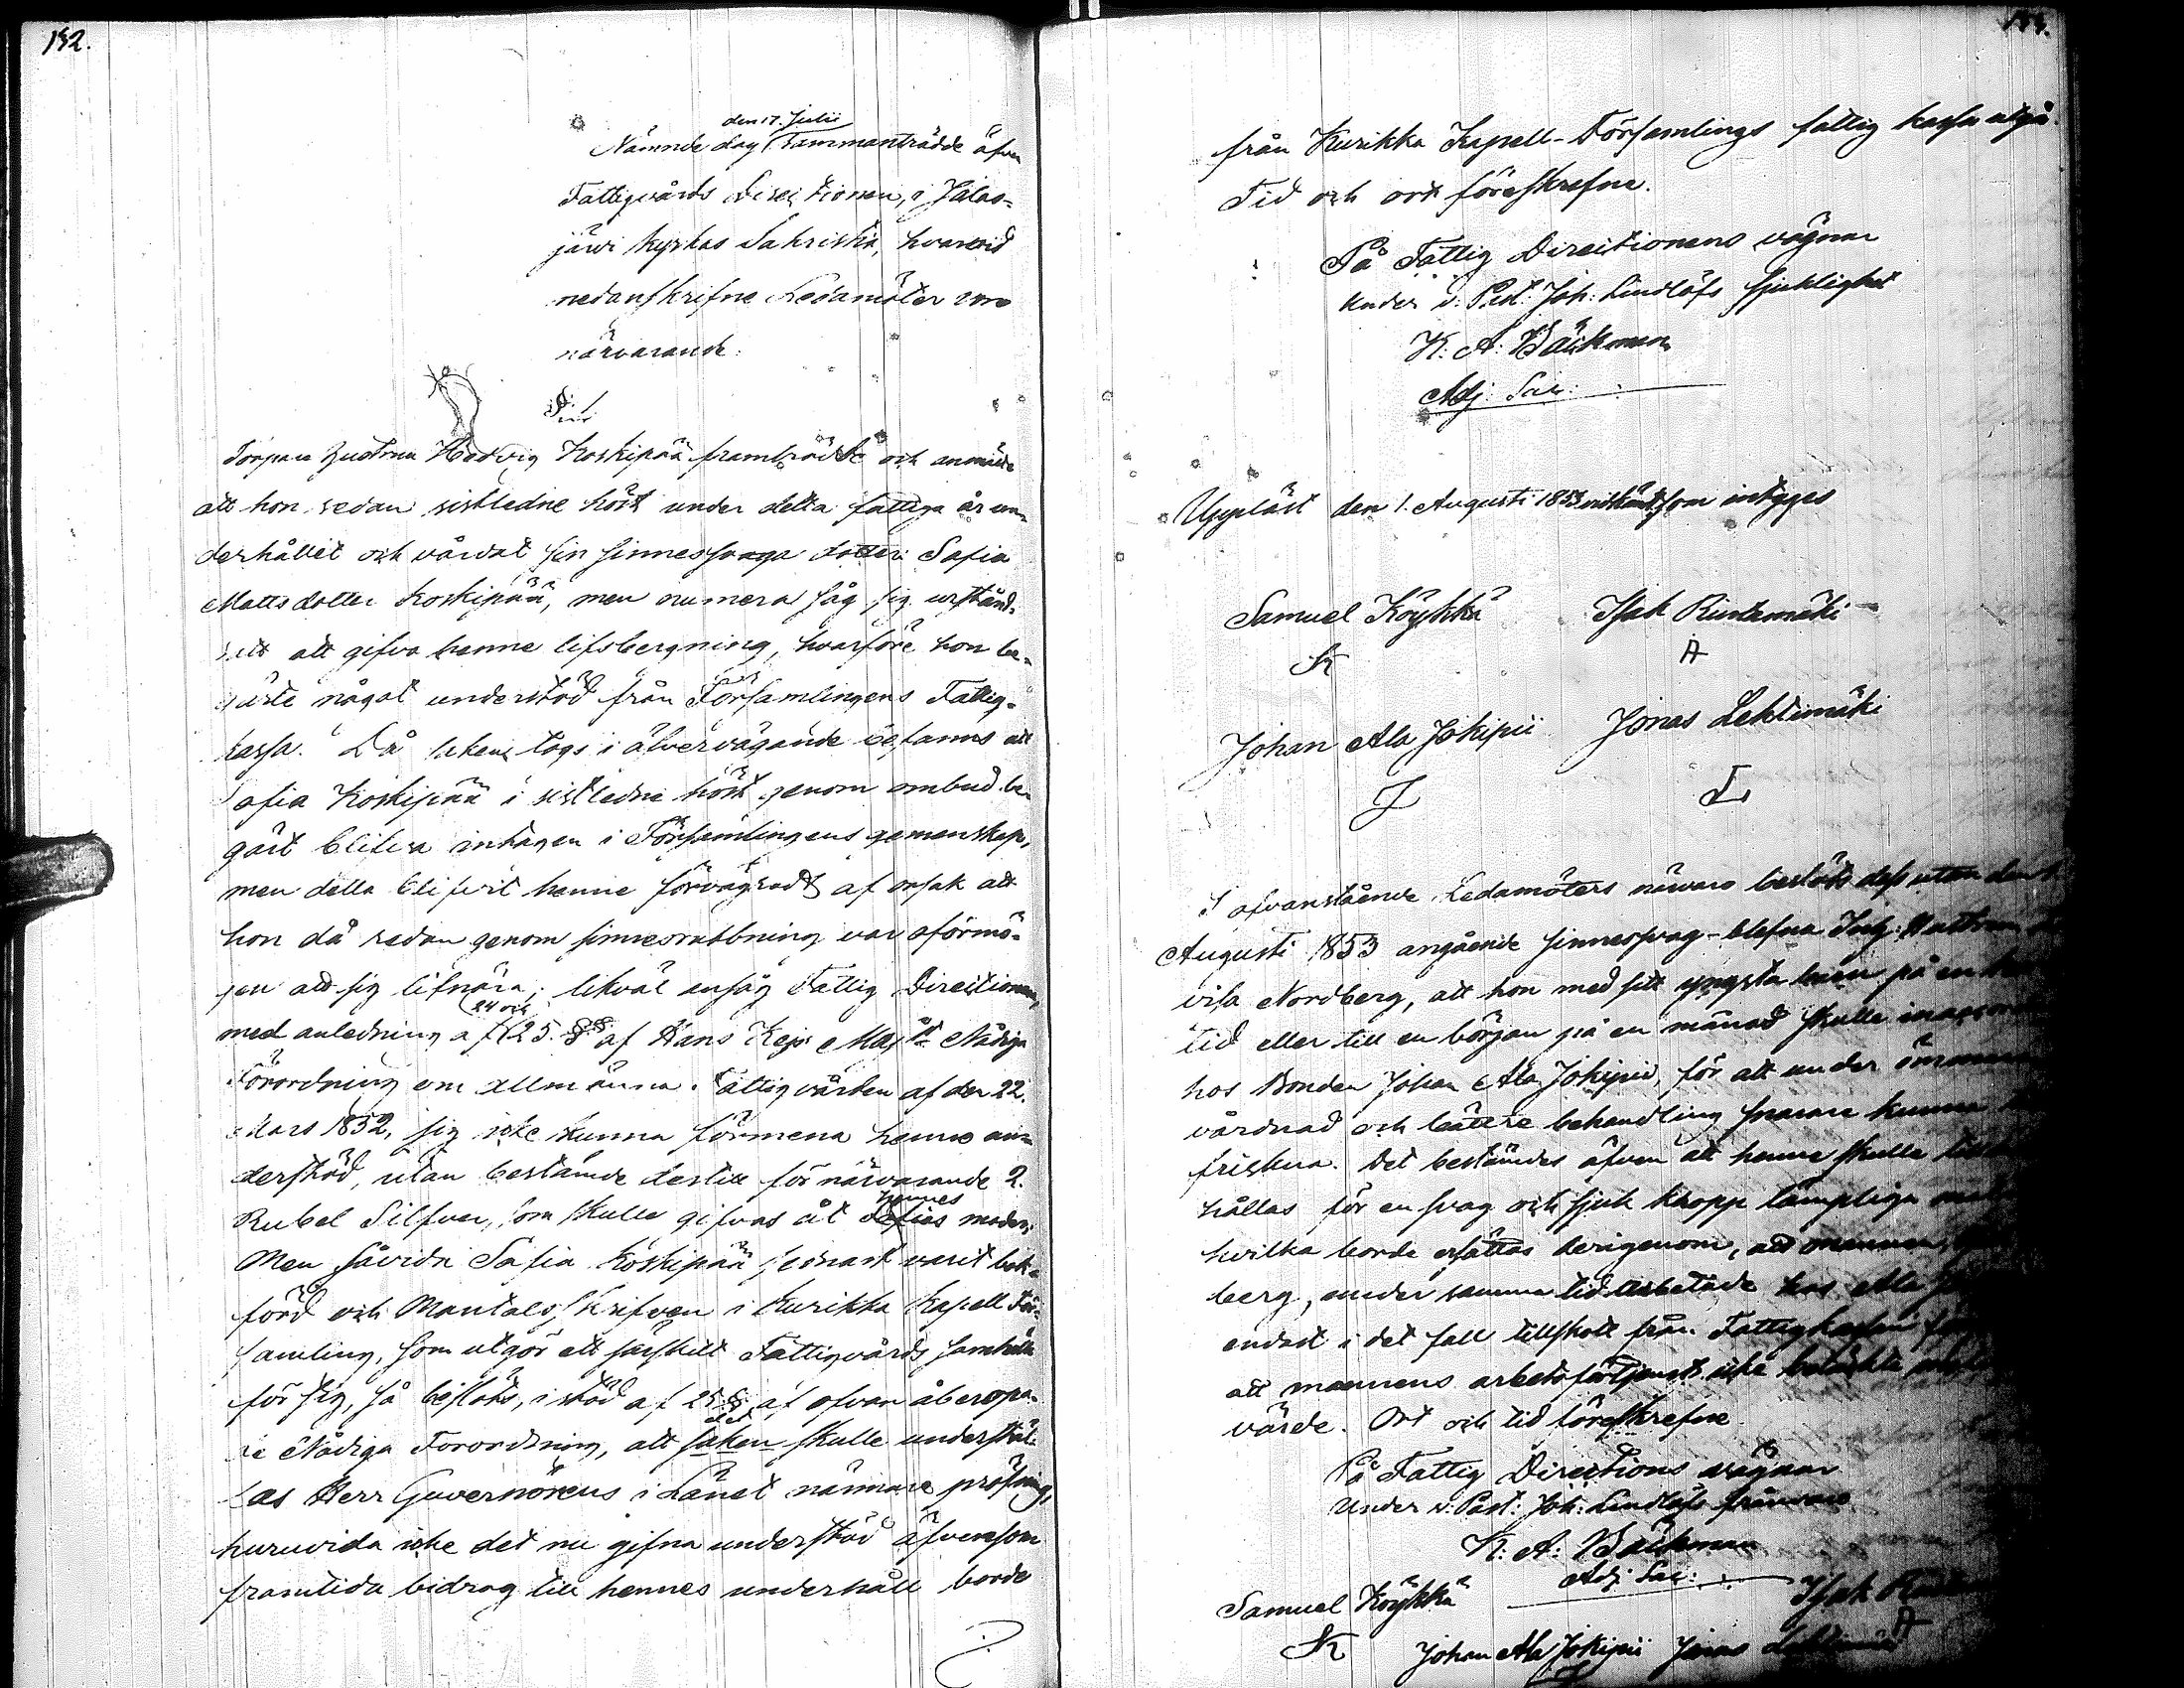 152.
den 17. Julii
Nämnde dag sammanträdde äfven
Fattigvårds Direktionen, i Jalas-
järvi kyrkas Sakristia, hvarvid
nedanskrifne Ledamöter voro
närvarande:
§ 1.
Torpare Enkan Hedvig Koskipää framträdde och anmälde
att hon sedan sistledne höst under detta fattiga år un-
derhållit och vårdat sin sinnessvaga dotter Safia
Mattsdotter Koskipää, men numera såg sig urstånd-
satt att gifva henne lifsbergning, hvarföre hon be-
gärte något understöd från Församlingens Fattig-
kassa. Då saken togs i öfvervägande befanns att
Safia Koskipää i sistledne höst genom ombud be-
gärt blifva intagen i Församlingens gemenskap,
men detta blifvit henne förvägradt af orsak att
hon då redan genom sinnesrubbning var oförmö-
gen att sig lifnära; likväl ansåg Fattig Direktionen,
24 och
med anledning af 25. §§ af Hans Kejs. Maj:ts Nådiga
Förordning om allmänna Fattigvården af den 22.
Mars 1852, sig icke kunna förmena henne un-
derstöd, utan bestämde dertill för närvarande 2.
hennes
Rubel Silfver, som skulle gifvas åt Safias moder;
Men såvida Safia Koskipää senast varit bok-
förd och Mantals skrifven i Kurikka Kapell För-
samling, som utgör ett särskilt Fattigvårds samhälle
för sig, så beslöts, i stöd af 25 § af ofvan åberopa-
de Nådiga Förordning, att saken skulle underställ-
las Herr Guvernörens i Länet närmare pröfning,
huruvida icke det nu gifna understöd äfvensom
framtida bidrag till hennes underhåll borde
från Kurikka Kapell-Församlings fattig kassa utgå.
Tid och ort föreskrefne.
På Fattig Direktionens vägnar
under v. Past: Joh: Lindlöfs sjuklighet
K: A: Bäckman
Adj: Sac:
Uppläst den 1. Augusti 1853 som intygas
Samuel Köykkä Isak Rintamäki
SK A
Johan Ala Jokipii Jonas Lehtimäki
J L
I ofvanstående Ledamöters närvaro beslöts dess utan den
Augusti 1853 angående sinnessvag-blefna
visa Nordberg, att hon med sitt yngsta barn på en
tid eller till en början på en månad skulle
hos Bonden Johan Ala Jokipii, för att under
vårdnad och bättre behandling snarare kunna
friskna. Det bestämdes äfven att henne skulle
hållas för en svag och sjuk kropp lämpliga
hvilka borde ersättas derigenom, att mannen,
berg, under samma tid arbetade hos Ala
endast i det fall tillskott från Fattigkassan
att mannens arbetsförtjenst icke betäckte
värde. Ort och tid föreskrefne
På Fattig Direktions vägnar
Under v: Past: Joh: Lindlöfs frånvaro
K: A: Bäckman
Adj: Sac:
Samuel Köykkä Isak
SK A
Johan Ala Jokipii Jonas
J